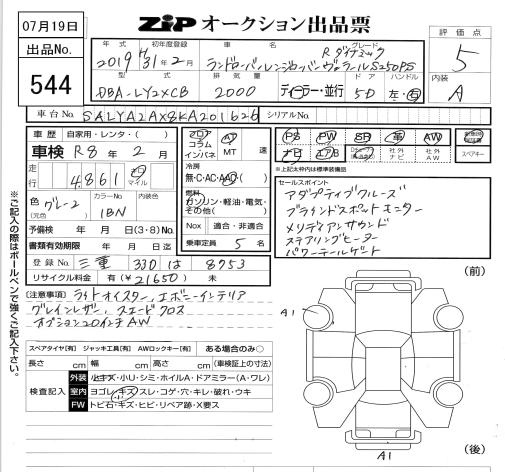 07月19日
ZIP オークション出品票
評価点
出品No.
544
年式 初年度登録 車名 グレード
2019 H31年2月 ランドローバーレンジローバーヴェラール Rダイナミック S250PS
5
型式 排気量 ドア ハンドル
DBA-LY2XCB 2000 ディーラー・並行 5D 左・右
内装
A
車台No. SALYA2AX8KA201626 シリアルNo.
車歴 自家用・レンタ・( )
車検 R8年2月
フロア コラム インパネ AT MT 速
PS PW SR 革 AW
走行 4861 km マイル
冷房 無・C・AC・AAC( )
ナビ エアB 社外ナビ 社外AW スペアキー
※上記太枠内は標準装備品
色 グレー2 カラーNo. 1BN 内装色
(元色)
燃料 ガソリン・軽油・電気・その他( )
予備検 年 月 日(3・8)No.
Nox 適合・非適合
書類有効期限 年 月 日迄
乗車定員 5 名
登録No. 三重 330 は 8753
リサイクル料金 有(¥21650) 未
セールスポイント
アダプティブクルーズ
ブラインドスポットモニター
メリディアンサウンド
ステアリングヒーター
パワーテールゲート
[注意事項] ライトオイスター、エボニーインテリア
グレインレザー、スエードクロス
オプション20インチAW
※ご記入の際はボールペンで強くご記入下さい。
スペアタイヤ[有] ジャッキ工具[有] AWロックキー[有] ある場合のみ○
長さ cm 幅 cm 高さ cm (車検証上の寸法)
検査記入
外装 小キズ・小U・シミ・ホイルA・ドアミラー(A・ワレ)
室内 ヨゴレ・キズ・スレ・コゲ・穴・キレ・破れ・ウキ
小
FW トビ石・キズ・ヒビ・リペア跡・X要ス
(前)
A1
A1
(後)